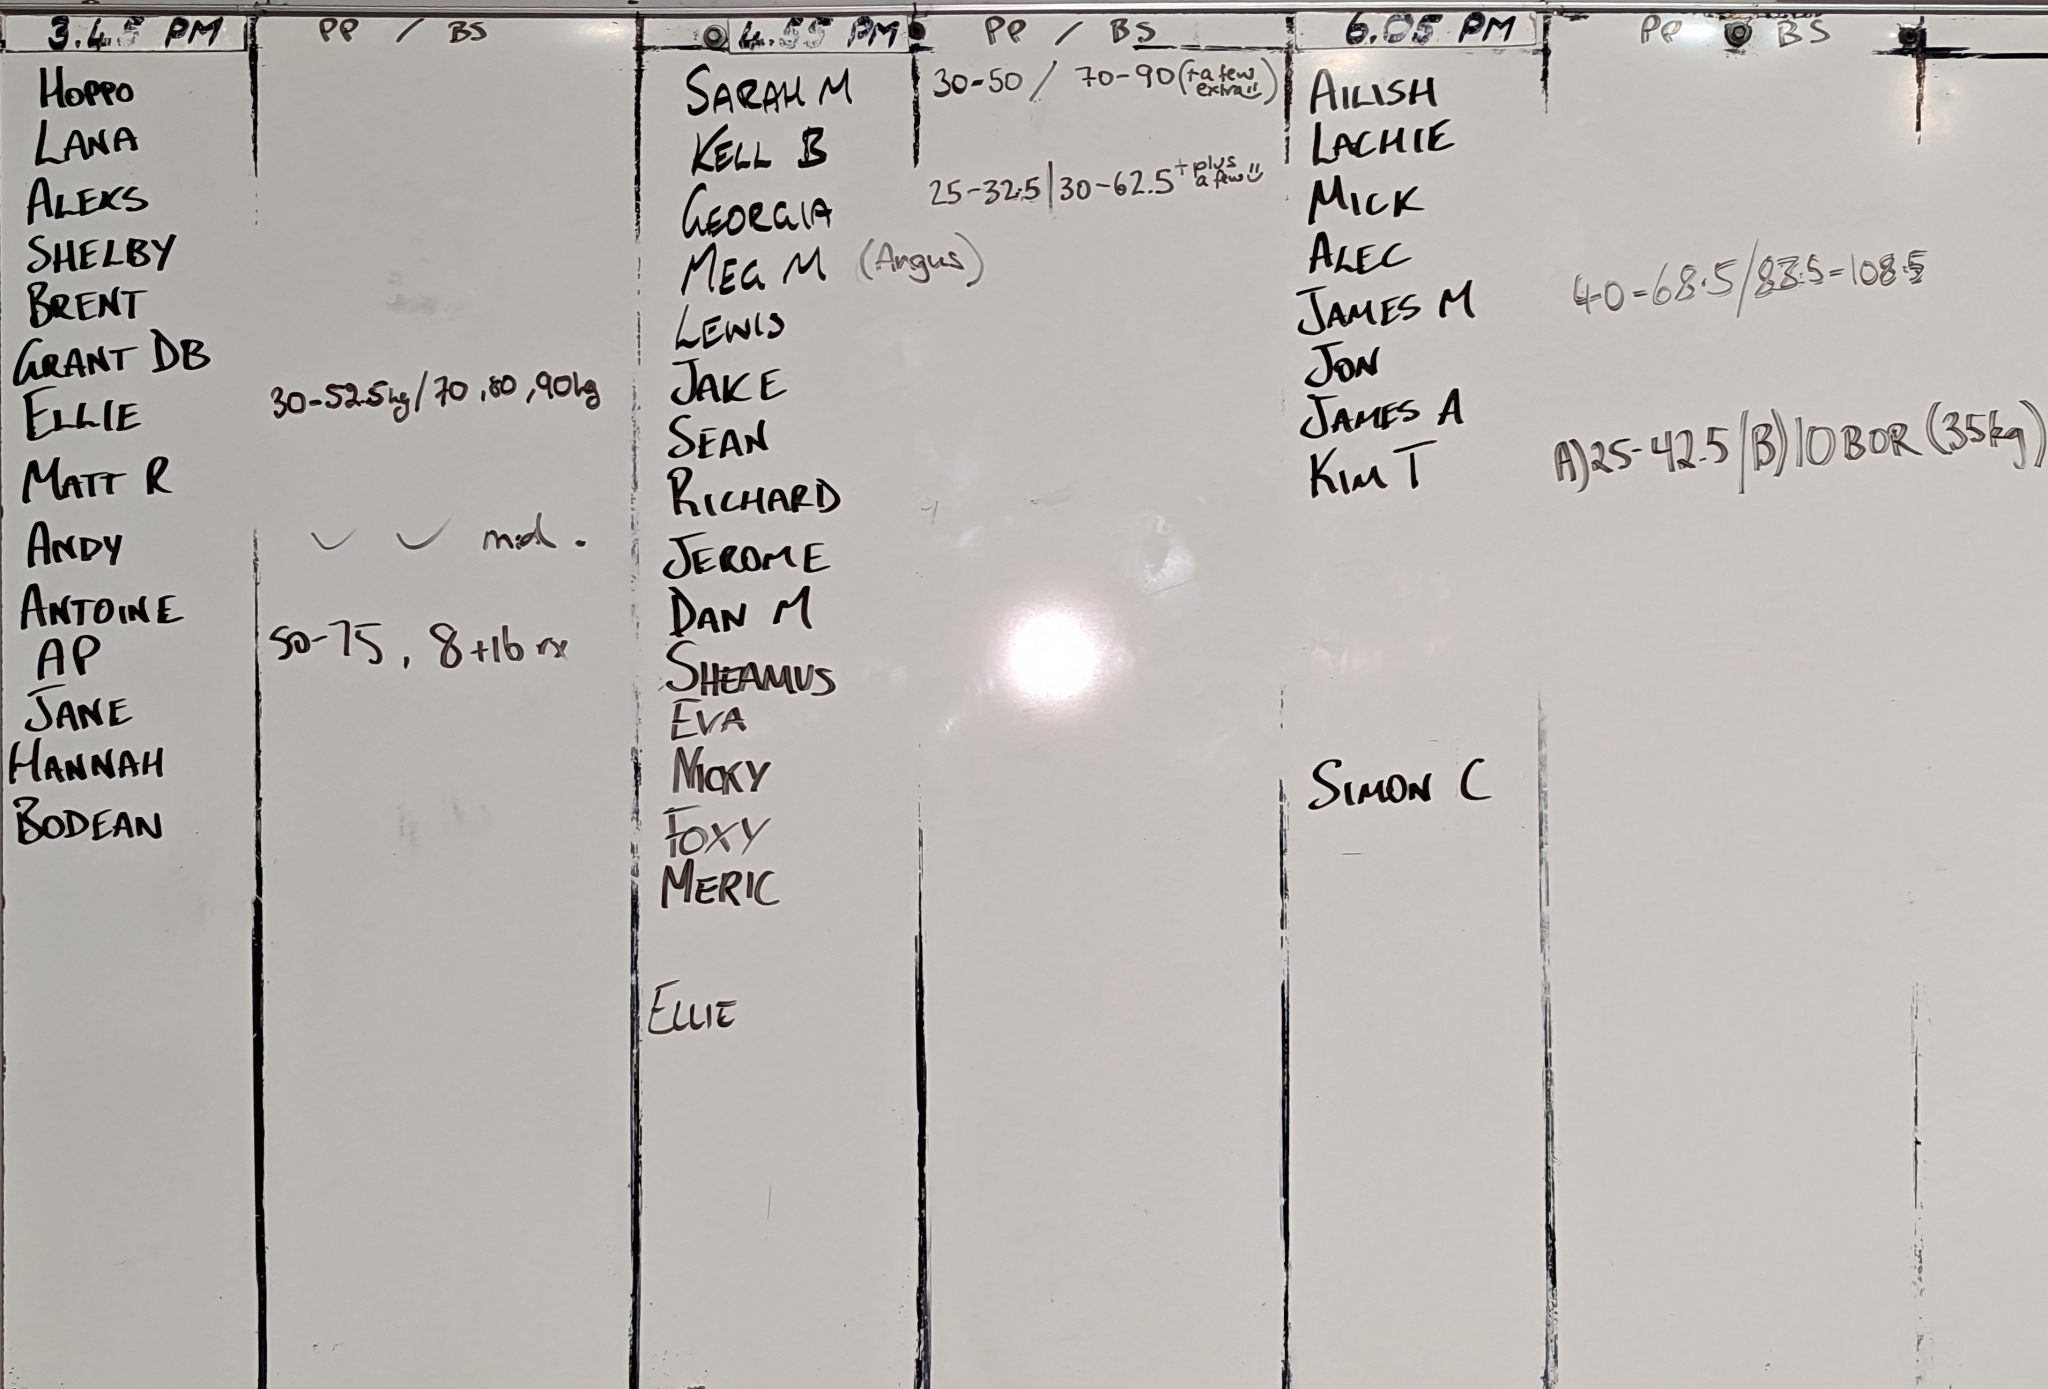 3.45 PM PP / BS
HOPPO
LANA
ALEKS
SHELBY
BRENT
GRANT DB
ELLIE 30-52.5kg/70,80,90kg
MATT R
ANDY
ANTOINE
AP 50-75, 8+16 rx
JANE
HANNAH
BODEAN
4.55 PM PP / BS
SARAH M 30-50 / 70-90 (+a few extra)
KELL B
GEORGIA 25-32.5|30-62.5 + plus a few
MEG M (Angus)
LEWIS
JAKE
SEAN
RICHARD
JEROME
DAN M
SHEAMUS
EVA
NICKY
FOXY
MERIC
ELLIE
6.05 PM PP BS
AILISH
LACHIE
MICK
ALEC
JAMES M 40=68.5/83.5=108.5
JON
JAMES A
KIM T A)25-42.5/B)10 BOR (35kg)
SIMON C